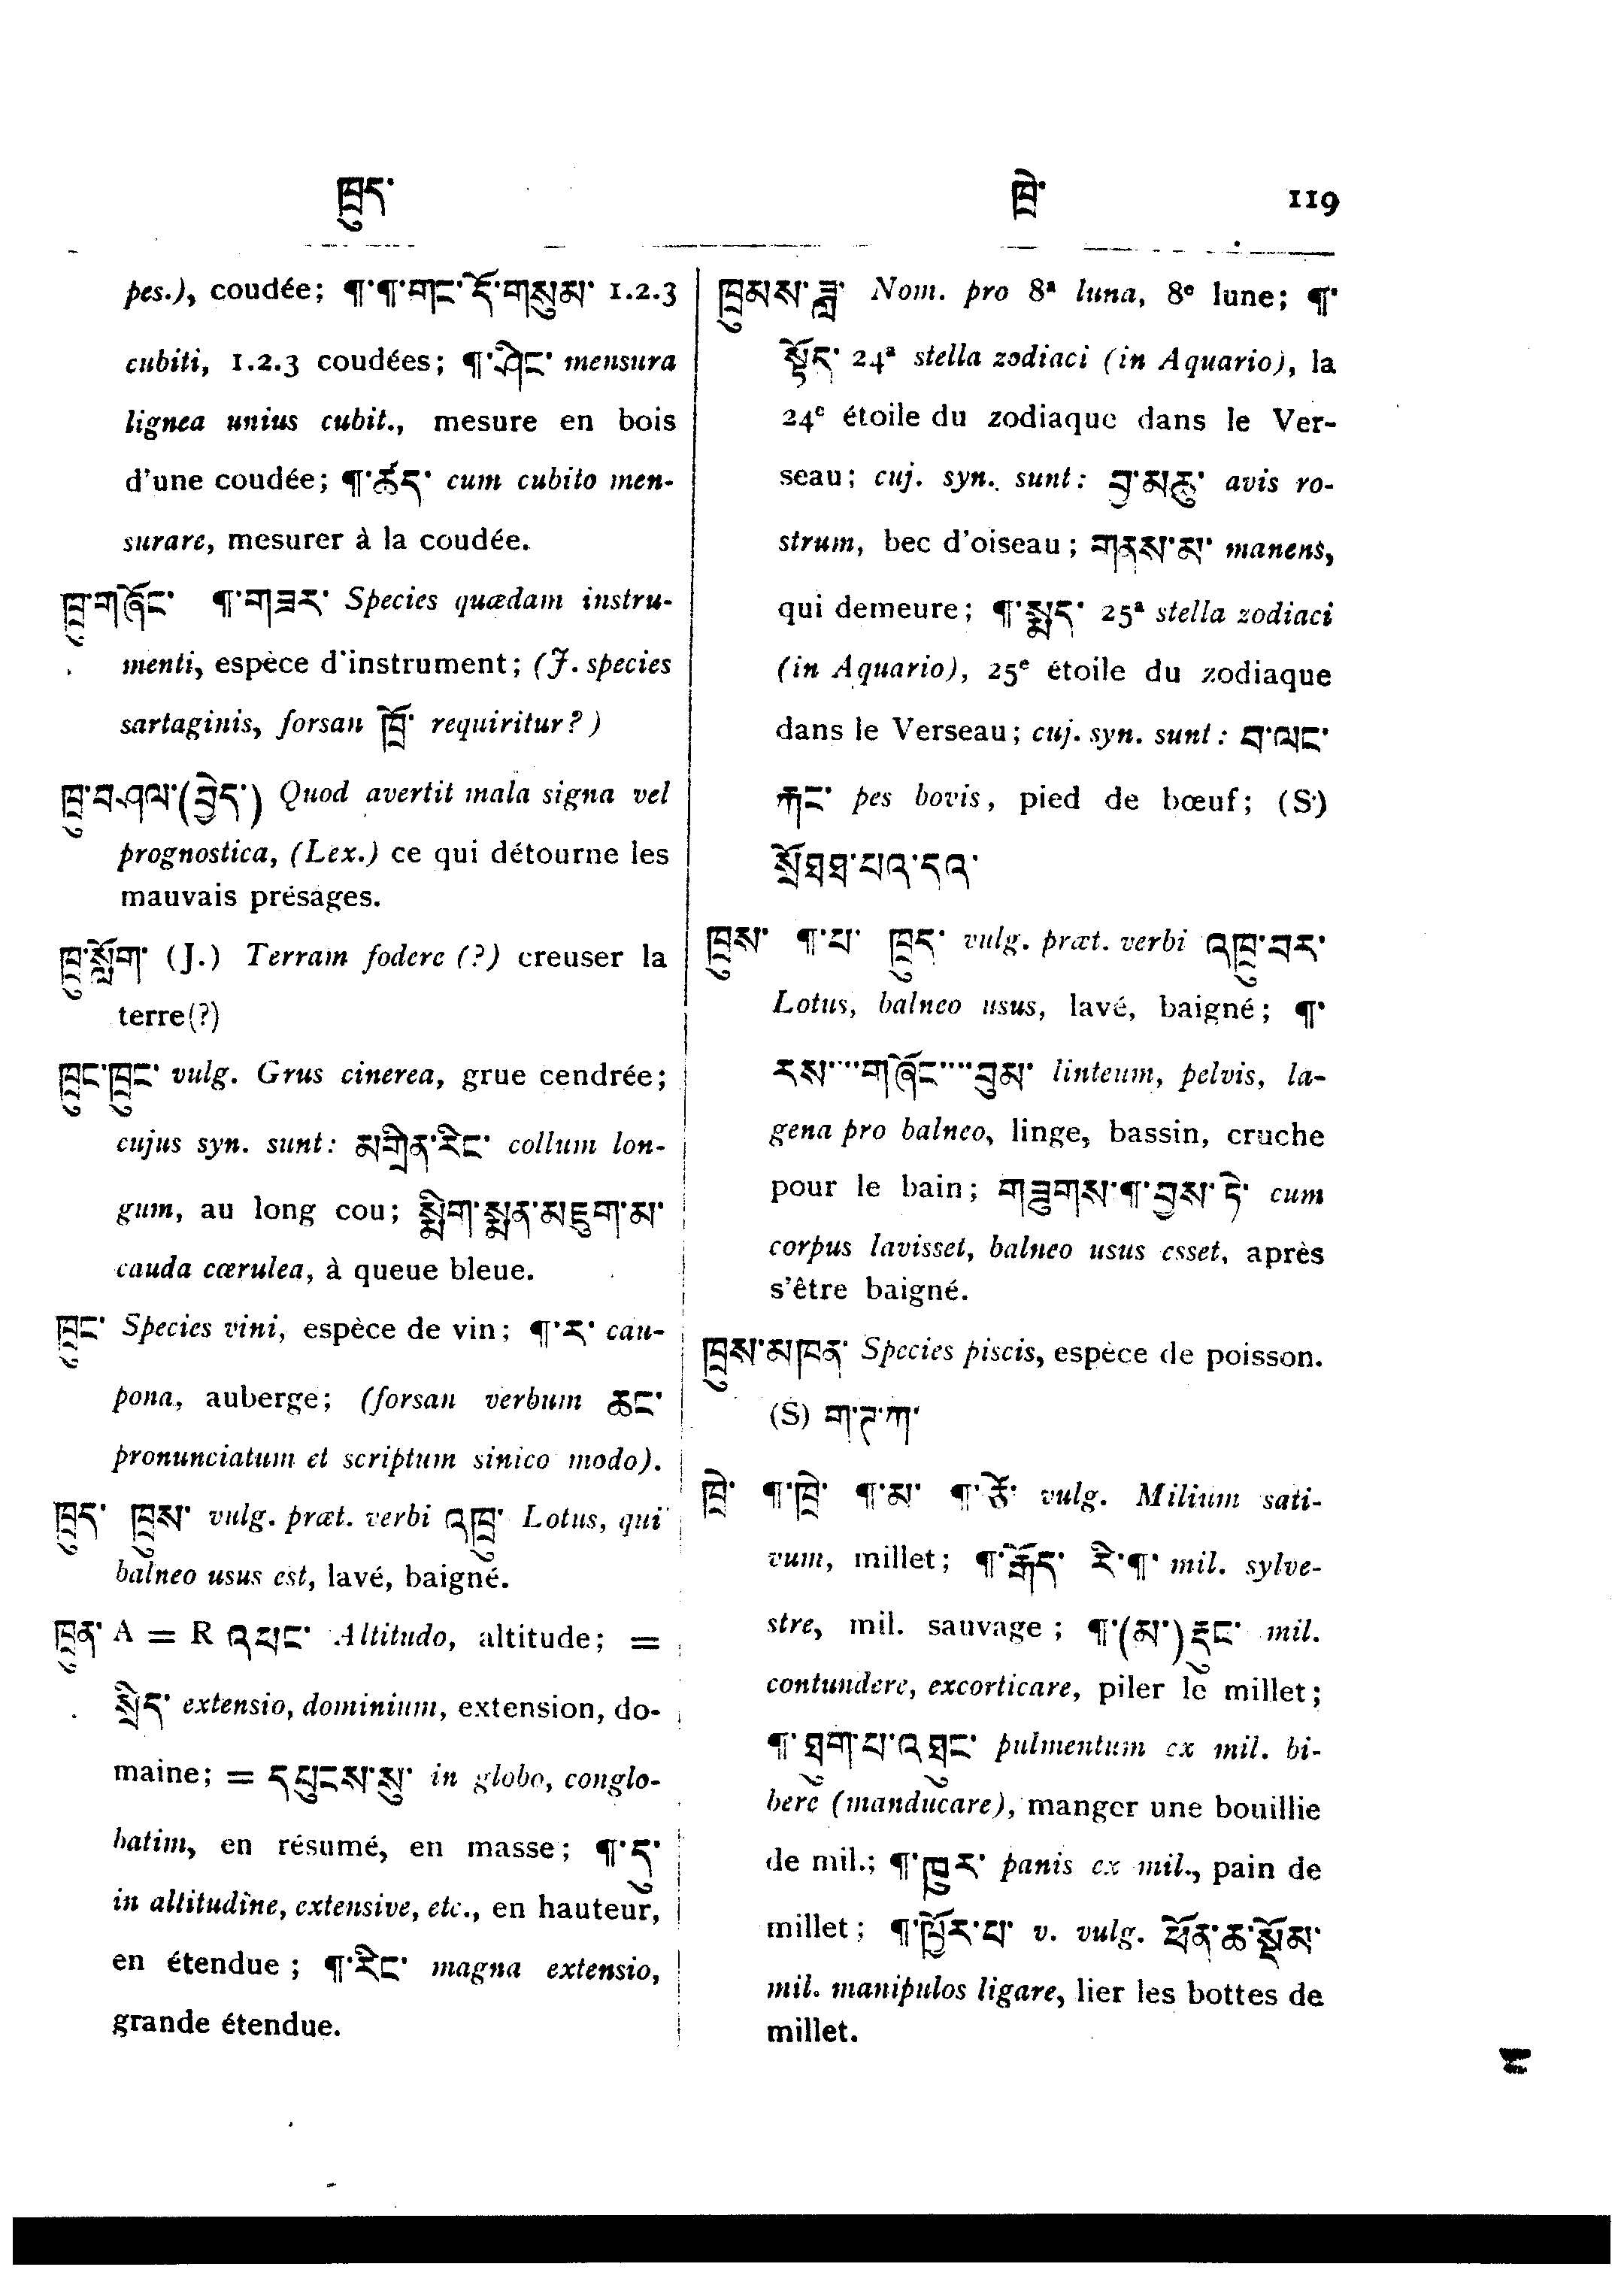 ཁྲུད་ ཁྲེ་ 119
pes.), coudée; ¶་¶་གང་དོ་གསུམ་ 1.2.3
cubiti, 1.2.3 coudées; ¶་ཤིང་ mensura
lignea unius cubit., mesure en bois
d'une coudée; ¶་ཚད་ cum cubito men-
surare, mesurer à la coudée.
ཁྲུ་གཞོང་ ¶་གཟར་ Species quædam instru-
menti, espèce d'instrument; (J. species
sartaginis, forsan ཁྲོ་ requiritur?)
ཁྲུ་བ་ཤལ་(བྱེད་) Quod avertit mala signa vel
prognostica, (Lex.) ce qui détourne les
mauvais présages.
ཁྲུ་སློག་ (J.) Terram fodere (?) creuser la
terre(?)
ཁྲུང་ཁྲུང་ vulg. Grus cinerea, grue cendrée;
cujus syn. sunt: མགྲིན་རིང་ collum lon-
gum, au long cou; སྨིག་སྨན་མཇུག་མ་
cauda cærulea, à queue bleue.
ཁྲུང་ Species vini, espèce de vin; ¶་ར་ cau-
pona, auberge; (forsan verbum ཆང་
pronunciatum et scriptum sinico modo).
ཁྲུད་ ཁྲུས་ vulg. præt. verbi འཁྲུ་ Lotus, qui
balneo usus est, lavé, baigné.
ཁྲུན་ A = R འཕང་ Altitudo, altitude; =
སྲིད་ extensio, dominium, extension, do-
maine; = དཔུངས་སུ་ in globo, conglo-
batim, en résumé, en masse; ¶་དུ་
in altitudine, extensive, etc., en hauteur,
en étendue; ¶་རིང་ magna extensio,
grande étendue.
ཁྲུམས་ཟླ་ Nom. pro 8ª luna, 8e lune; ¶་
སྟོད་ 24ª stella zodiaci (in Aquario), la
24e étoile du zodiaque dans le Ver-
seau; cuj. syn. sunt: བྱ་མཆུ་ avis ro-
strum, bec d'oiseau; གནས་མ་ manens,
qui demeure; ¶་སྨད་ 25ª stella zodiaci
(in Aquario), 25e étoile du zodiaque
dans le Verseau; cuj. syn. sunt: བ་ལང་
རྐང་ pes bovis, pied de bœuf; (S)
སྲོཐཐ་པའ་དའ་
ཁྲུས་ ¶་པ་ ཁྲུད་ vulg. præt. verbi འཁྲུ་བར་
Lotus, balneo usus, lavé, baigné; ¶་
རས་...གཞོང་...བུམ་ linteum, pelvis, la-
gena pro balneo, linge, bassin, cruche
pour le bain; གཟུགས་¶་བྱས་ཏེ་ cum
corpus lavisset, balneo usus esset, après
s'être baigné.
ཁྲུས་མཁན་ Species piscis, espèce de poisson.
(S) ག་ཌ་ཀ་
ཁྲེ་ ¶་ཁྲེ་ ¶་མ་ ¶་ཙོ་ vulg. Milium sati-
vum, millet; ¶་རྒོད་ རི་¶་ mil. sylve-
stre, mil. sauvage; ¶་(མ་)རྡུང་ mil.
contundere, excorticare, piler le millet;
¶་ཐུག་པ་འཐུང་ pulmentum ex mil. bi-
bere (manducare), manger une bouillie
de mil.; ¶་ཁུར་ panis ex mil., pain de
millet; ¶་ཁྱོར་པ་ v. vulg. ཕོན་ཆ་སྡོམ་
mil. manipulos ligare, lier les bottes de
millet.